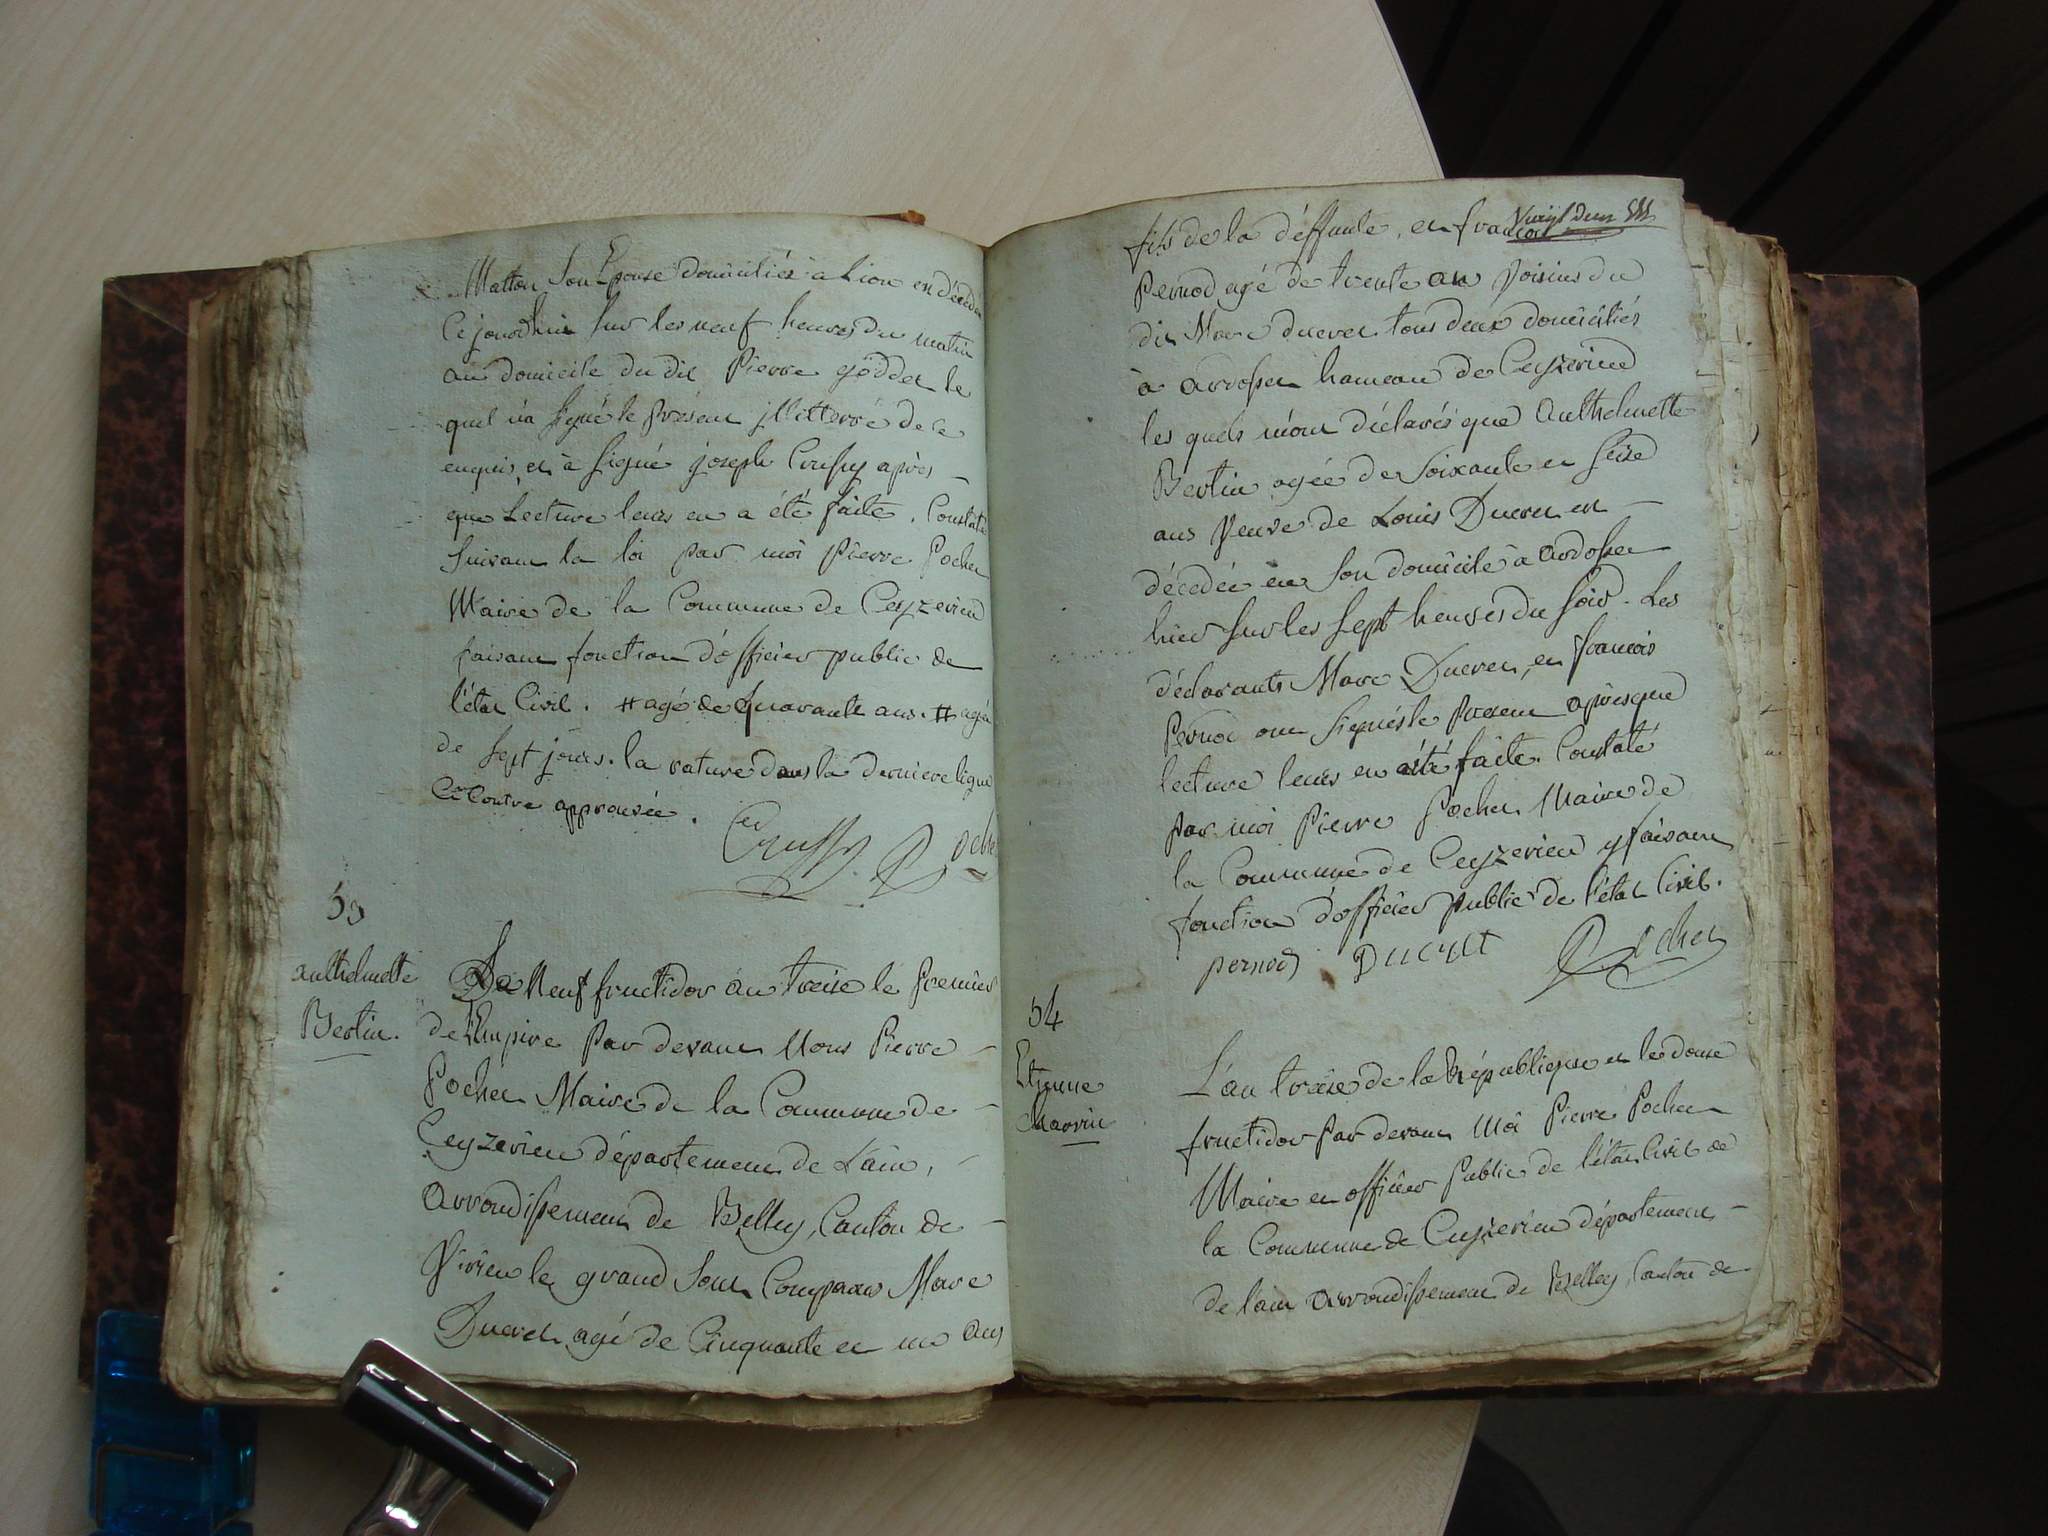 Matton Son Epouse domiciliés à Lion est décédé
Ce jourdhui sur les neuf heures du matin
au domicile du dit Pierre goddet le
quel n'a signé le présent illitterré de ce
enquis, et à signé joseph Crussy après
que Lecture leurs en a été faite. Constaté
Suivant la loi par moi Pierre Pochet
Maire de la Commune de Ceyzerieu
faisant fonction d'officier public de
l'état Civil. # agé de quarante ans. # agé
de sept jours. la rature dans la derniere ligne
Ci Contre approuvée.
Crussy. Pochet
53
Anthelmette
Bertin.
Le Neuf fructidor an treise le premier
de l'Empire Par devant Nous Pierre
Pochet Maire de la Commune de
Ceyzerieu département de L'ain,
arrondissement de Belley, Canton de
Virieu le grand Sont Comparus Marc
Ducret agé de Cinquante et un ans
Vingt deux
fils de la deffunte, et francois
Pernod agé de trente an Voisins du
dit Marc ducret tous deux domiciliés
à ardosset hameau de Ceyzerieu
les quels m'ont déclarés que Anthelmette
Bertin agée de Soixante et seise
ans Veuve de Louis Ducret est
décédée en son domicile à ardosset
hier sur les sept heures du soir. Les
déclarants Marc Ducret, et francois
Pernod ont signés le présent après que
lecture leurs en a été faite. Constaté
par moi Pierre Pochet Maire de
la Commune de Ceyzerieu y faisant
fonction d'officier public de l'état Civil.
pernod Ducret Pochet
54
Etienne
L'an treise de la République et le douse
fructidor Par devant Moi Pierre Pochet
Maire et officier Public de l'état Civil de
la Commune de Ceyzerieu département
de l'ain arrondissement de Belley, Canton de